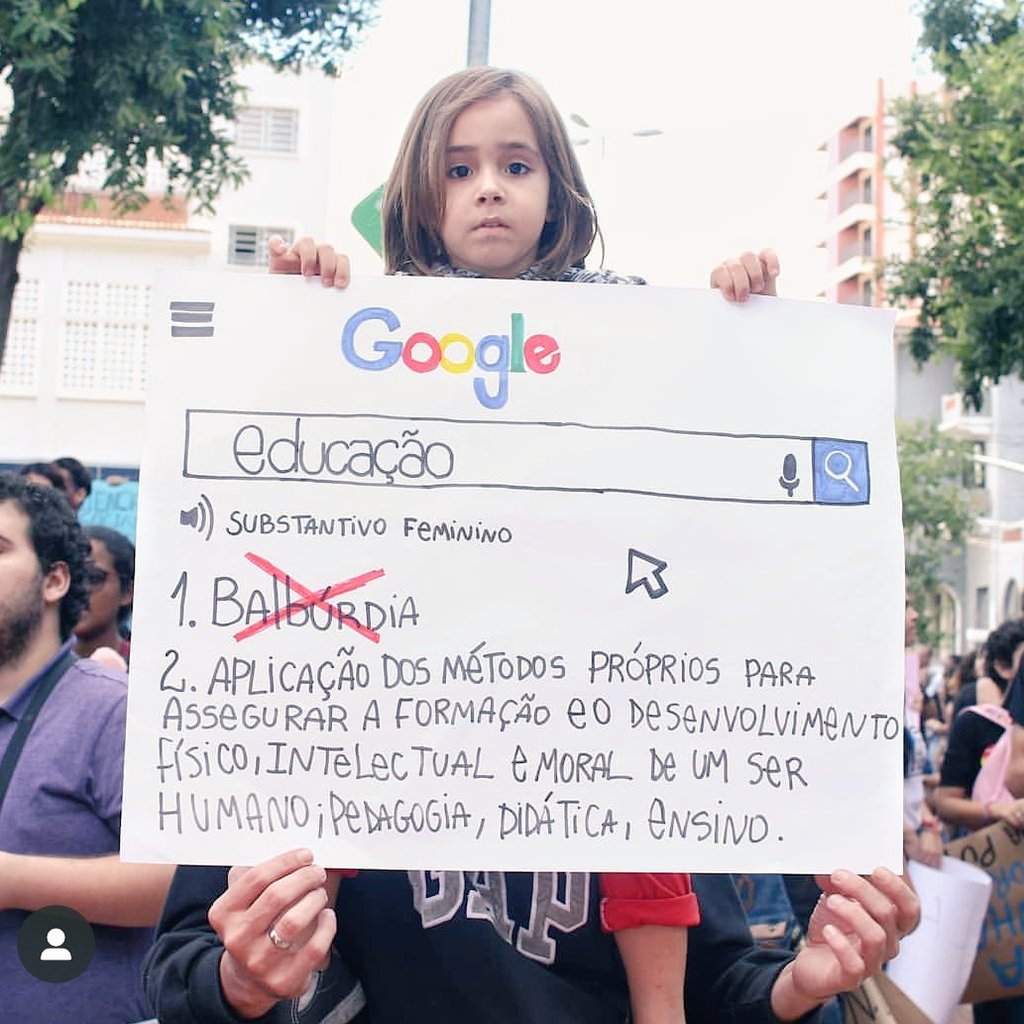 Google
educação
SUBSTANTIVO FEMININO
1. BALBÚRDIA
2. APLICAÇÃO DOS MÉTODOS PRÓPRIOS PARA
ASSEGURAR A FORMAÇÃO E O DESENVOLVIMENTO
FÍSICO, INTELECTUAL E MORAL DE UM SER
HUMANO; PEDAGOGIA, DIDÁTICA, ENSINO.
GAP